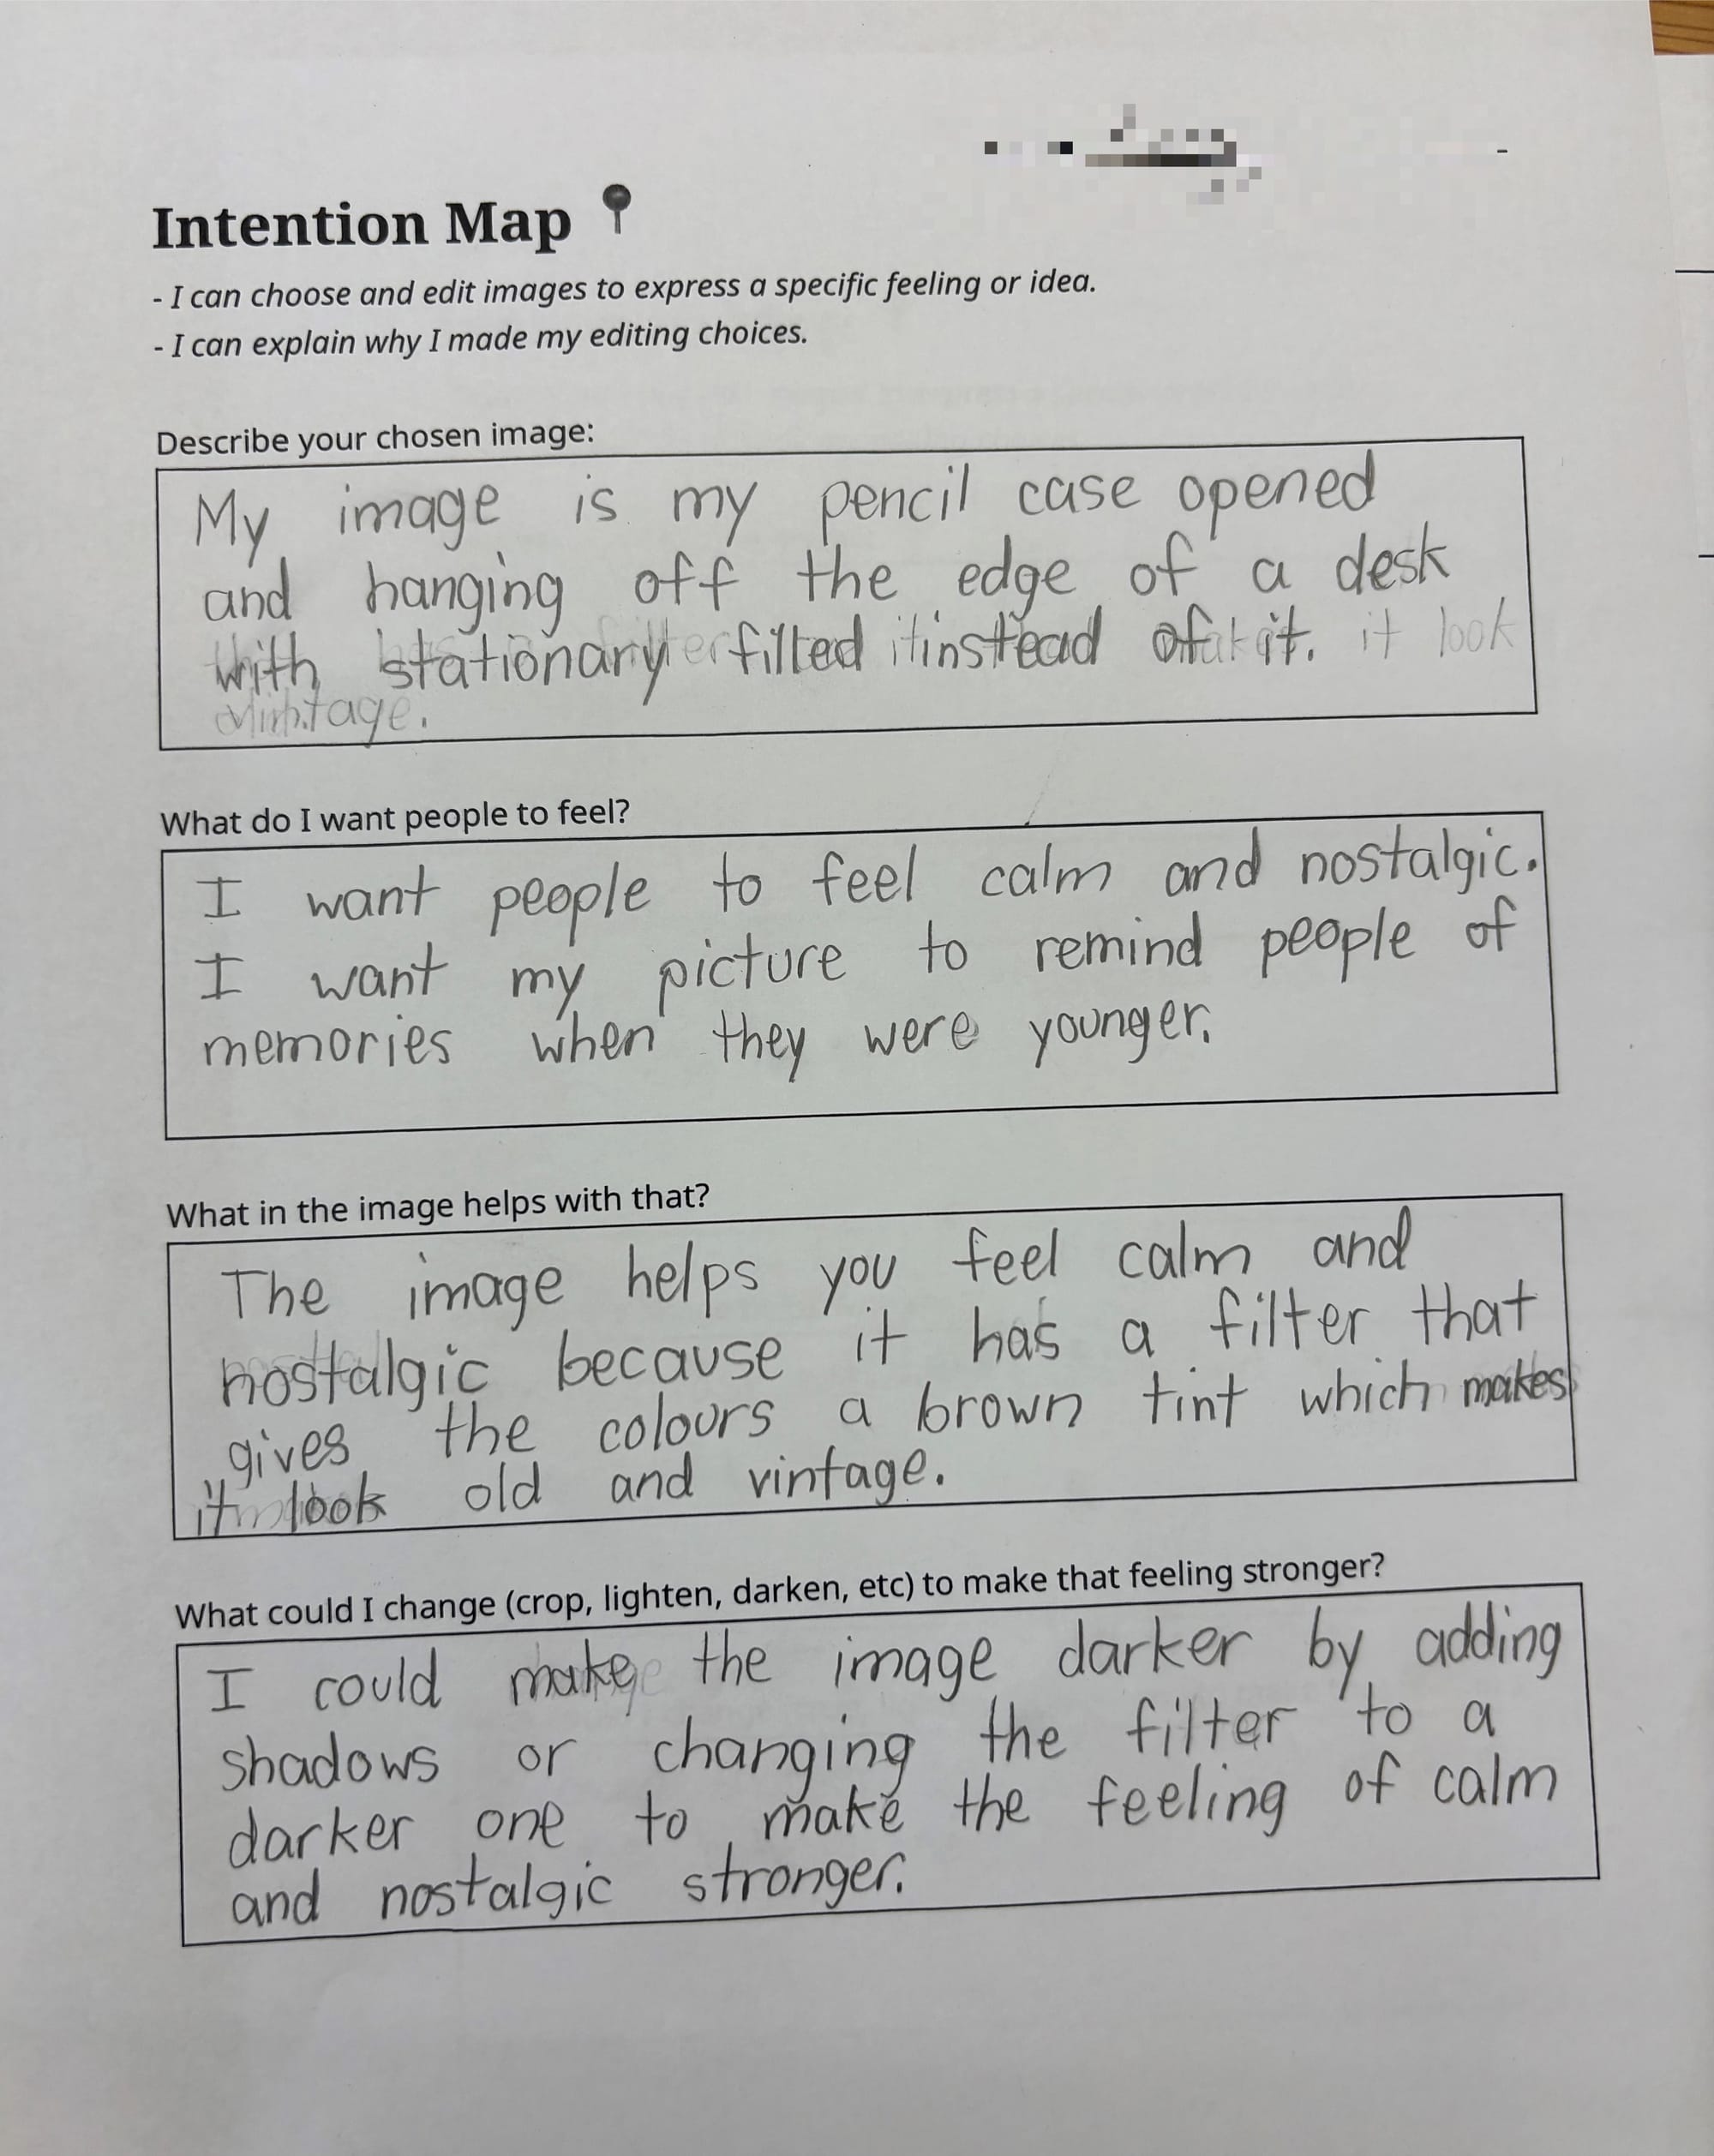 Intention Map
- I can choose and edit images to express a specific feeling or idea.
- I can explain why I made my editing choices.
Describe your chosen image:
My image is my pencil case opened
and hanging off the edge of a desk
with stationary filled instead of it. it look
vintage.
What do I want people to feel?
I want people to feel calm and nostalgic.
I want my picture to remind people of
memories when they were younger.
What in the image helps with that?
The image helps you feel calm and
nostalgic because it has a filter that
gives the colours a brown tint which makes
it look old and vintage.
What could I change (crop, lighten, darken, etc) to make that feeling stronger?
I could make the image darker by adding
shadows or changing the filter to a
darker one to make the feeling of calm
and nostalgic stronger.